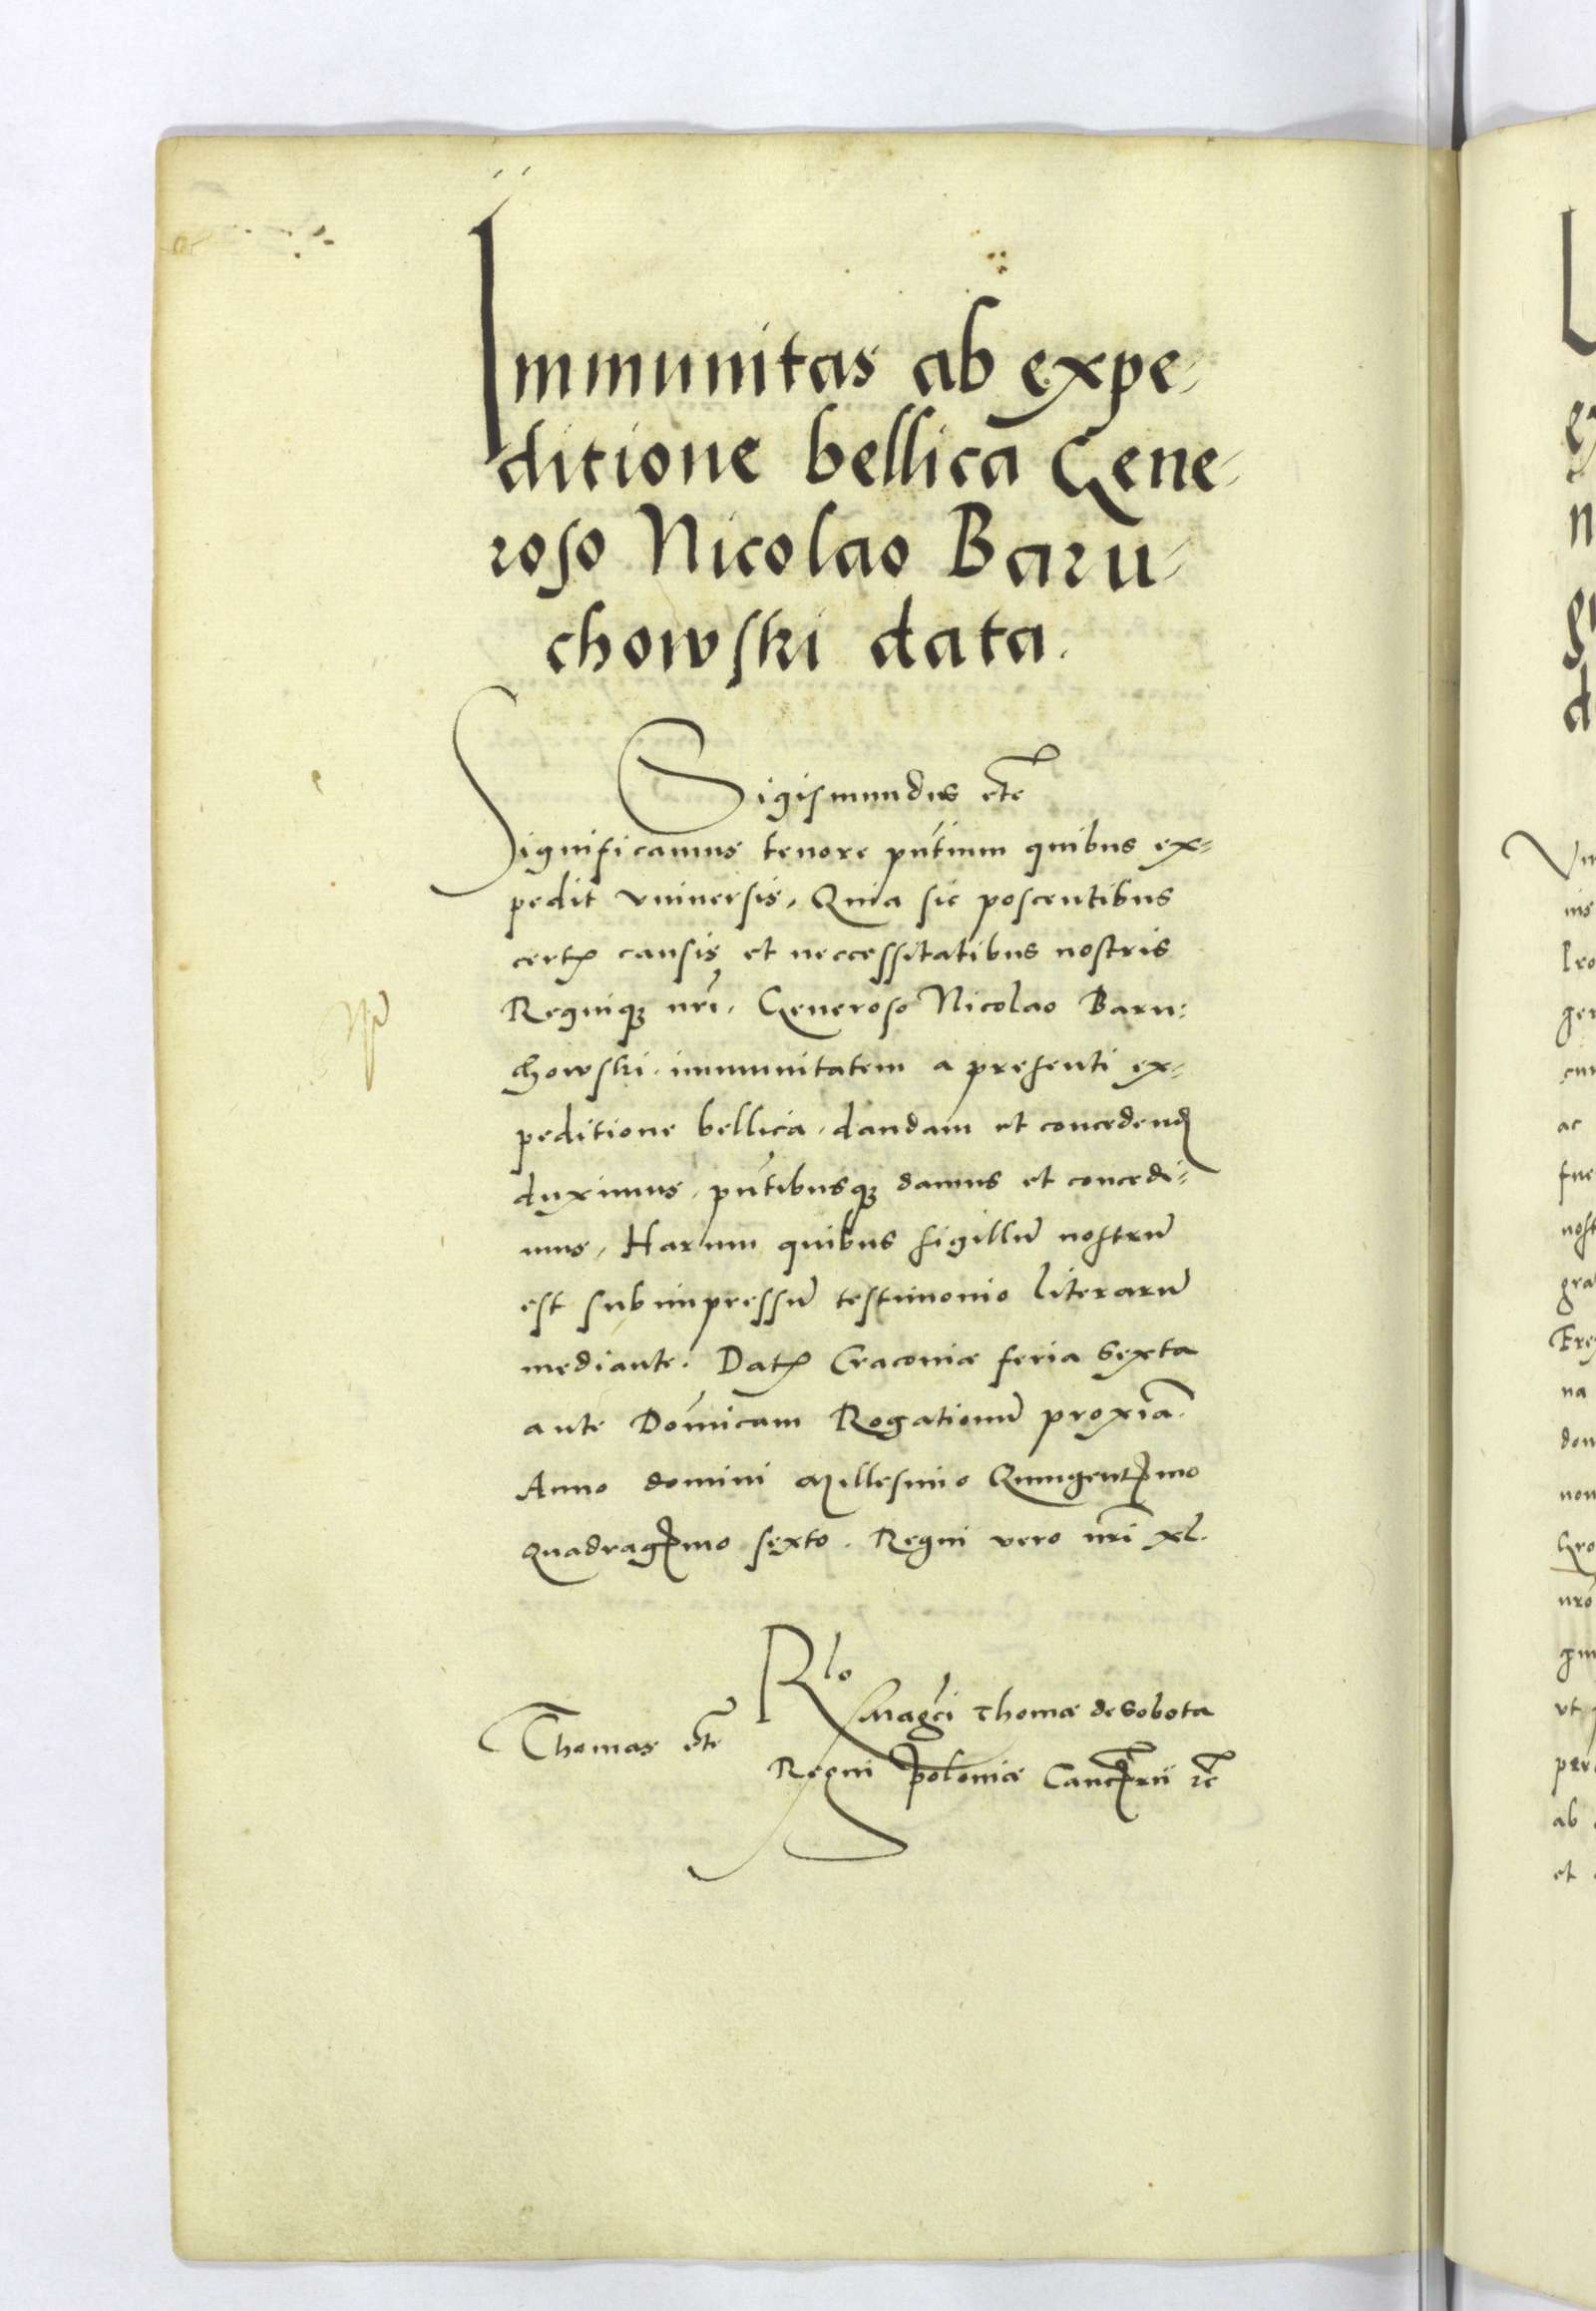 Immunitas ab expe-
ditione bellica Gene-
roso Nicolao Baru-
chowski data.
Sigismundus etc̄
Significamus tenore pñtium quibus ex-
pedit vniuersis, Quia sic poscentibus
certꝭ causis et neccessitatibus nostris
Regniqꝫ nr̄i, Generoso Nicolao Baru-
chowski immunitatem a presenti ex-
peditione bellica, dandam et concedenđ
duximus, pñtibusqꝫ damus et concedi-
mus, Harum quibus sigillū nostrū
est subimpressū testimonio literarū
mediante. Datꝭ Cracoviæ feria sexta
ante Dōnicam Rogationū proxīa.
Anno domini Millesimo Quingentꝭmo
Quadragꝭmo sexto. Regni vero nr̄i xl.
Rlo
Magci Thomæ de Sobota
Thomas etc̄
Regni Poloniæ Cancꝭrii ⁊c̄